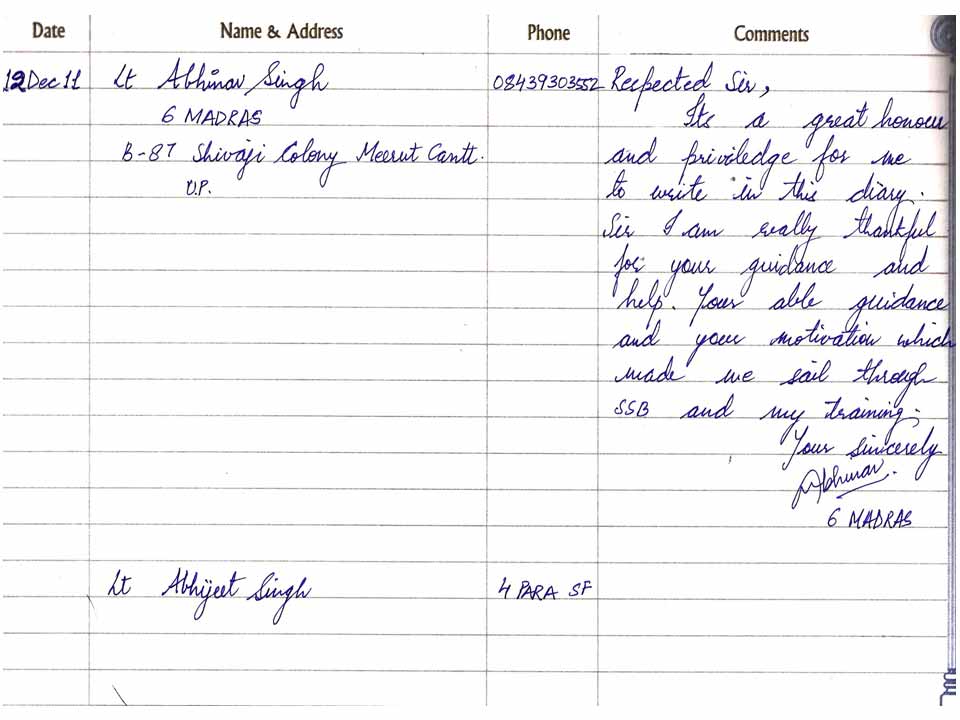 Date Name & Address Phone Comments
12 Dec 11 Lt Abhinav Singh 08439303552 Respected Sir,
6 MADRAS Its a great honour
B-87 Shivaji Colony Meerut Cantt. and priviledge for me
U.P. to write in this diary.
Sir I am really thankful
for your guidance and
help. Your able guidance
and your motivation which
made me sail through
SSB and my training.
Your sincerely
Abhinav.
6 MADRAS
Lt Abhijeet Singh 4 PARA SF